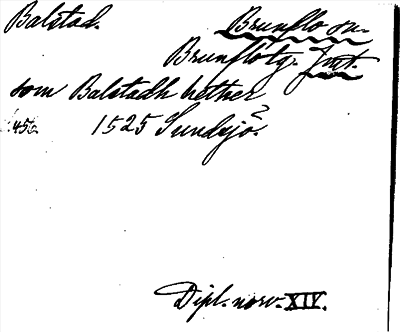 Balstad. Brunflo sn.
Brunflotg. Jmt.
som Balstadh hether
456. 1525 Sundsjö?
Dipl. norv. XIV.